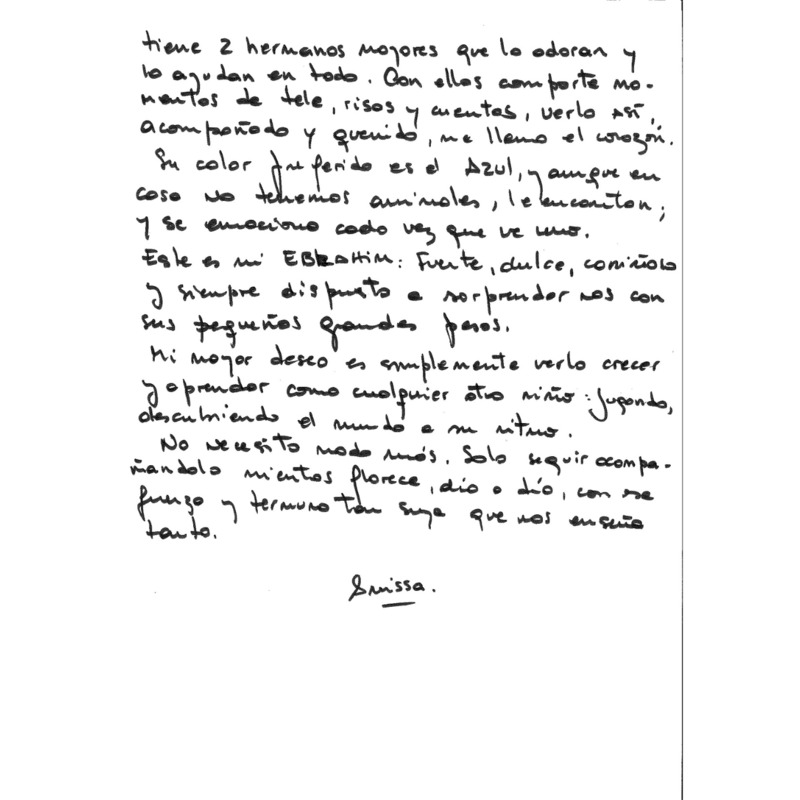 tiene 2 hermanos mayores que lo adoran y
lo ayudan en todo. Con ellos comparte mo-
mentos de tele, risas y cuentos, verlo así,
acompañado y querido, me llena el corazón.
Su color preferido es el AZUL, y aunque en
casa no tenemos animales, le encantan;
y se emociona cada vez que ve uno.
Este es mi EBRAHIM: Fuerte, dulce, cariñoso
y siempre dispuesto a sorprendernos con
sus pequeños grandes pasos.
Mi mayor deseo es simplemente verlo crecer
y aprender como cualquier otro niño: Jugando,
descubriendo el mundo a su ritmo.
No necesito nada más. Solo seguir acompa-
ñándolo mientras florece, día a día, con esa
fuerza y ternura tan suya que nos enseña
tanto.